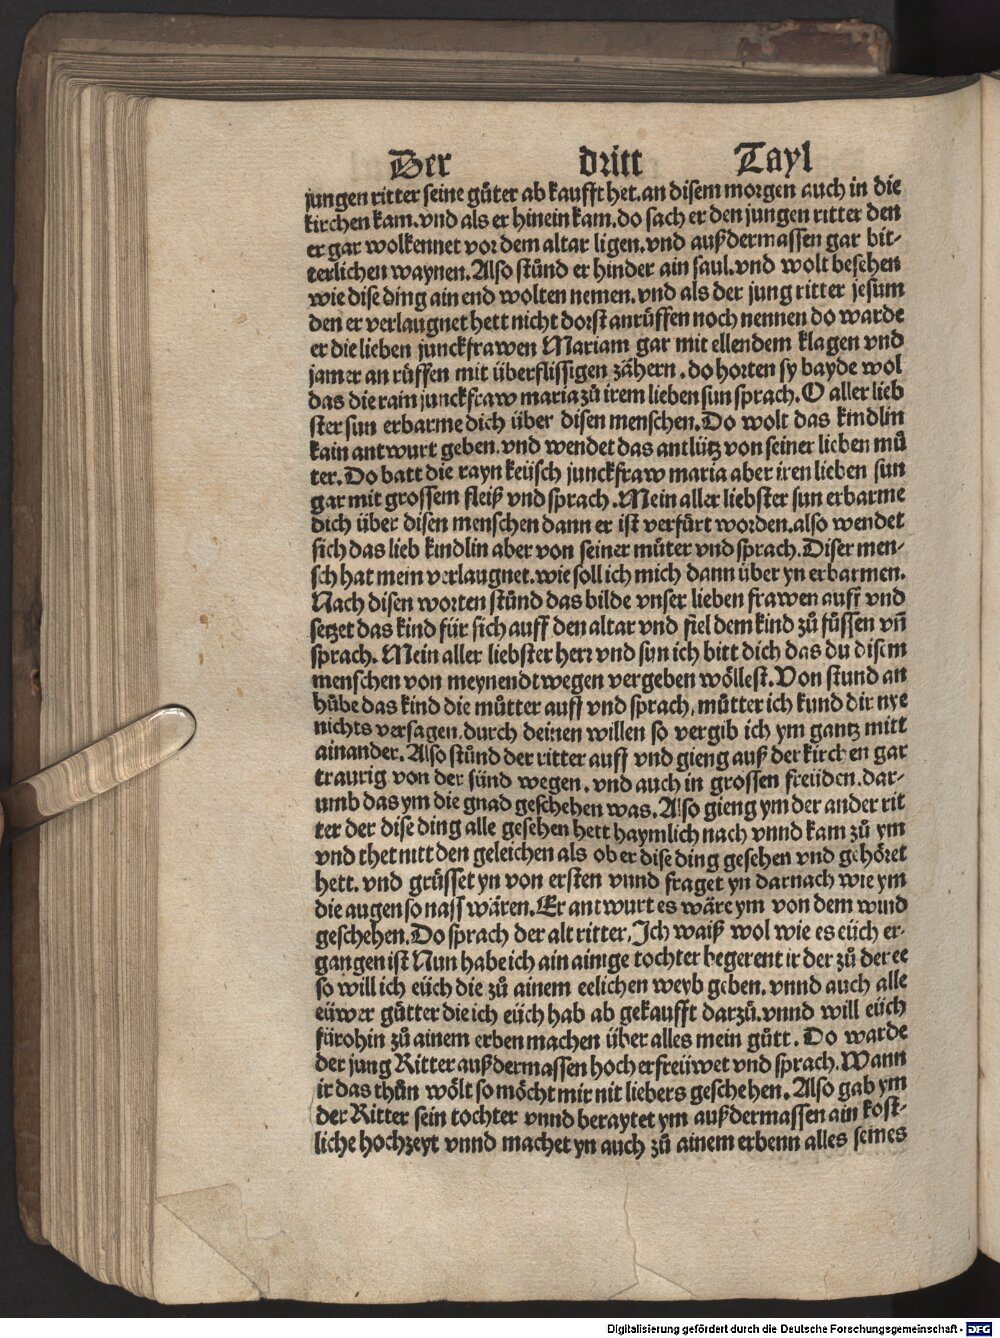 Der dritt Tayl
jungen ritter seine gůter ab kaufft het. an disem morgen auch in die
kirchen kam. vnd als er hinein kam. do sach er den jungen ritter den
er gar wol kennet vor dem altar ligen. vnd außdermassen gar bit-
terlichen waynen. Also stůnd er hinder ain saul. vnd wolt besehen
wie dise ding ain end wolten nemen. vnd als der jung ritter jesum
den er verlaugnet hett nicht dorst anrůffen noch nennen do warde
er die lieben junckfrawen Mariam gar mit ellendem klagen vnd
jamer an růffen mit überflissigen zähern. do horten sy bayde wol
das die rain junckfraw maria zů irem lieben sun sprach. O aller lieb
ster sun erbarme dich über disen menschen. Do wolt das kindlin
kain antwurt geben. vnd wendet das antlütz von seiner lieben mů
ter. Do batt die rayn keüsch junckfraw maria aber iren lieben sun
gar mit grossem fleiß vnd sprach. Mein aller liebster sun erbarme
dich über disen menschen dann er ist verfürt worden. also wendet
sich das lieb kindlin aber von seiner můter vnd sprach. Diser men-
sch hat mein verlaugnet. wie soll ich mich dann über yn erbarmen.
Nach disen worten stůnd das bilde vnser lieben frawen auff vnd
setzet das kind für sich auff den altar vnd fiel dem kind zů füssen vñ
sprach. Mein aller liebster herr vnd sun ich bitt dich das du disem
menschen von meynendt wegen vergeben wöllest. Von stund an
hůbe das kind die můtter auff vnd sprach, můtter ich kund dir nye
nichts versagen. durch deinen willen so vergib ich ym gantz mitt
ainander. Also stůnd der ritter auff vnd gieng auß der kirchen gar
traurig von der sünd wegen. vnd auch in grossen freüden. dar-
umb das ym die gnad geschehen was. Also gieng ym der ander rit
ter der dise ding alle gesehen hett haymlich nach vnnd kam zů ym
vnd thet nitt den geleichen als ob er dise ding gesehen vnd gehöret
hett. vnd grüsset yn von ersten vnnd fraget yn darnach wie ym
die augen so nass wären. Er antwurt es wäre ym von dem wind
geschehen. Do sprach der alt ritter. Ich waiß wol wie es eüch er-
gangen ist Nun habe ich ain ainige tochter begerent ir der zů der ee
so will ich eüch die zů ainem eelichen weyb geben. vnnd auch alle
eüwer gůtter die ich eüch hab ab gekaufft darzů. vnnd will eüch
fürohin zů ainem erben machen über alles mein gůtt. Do warde
der jung Ritter außdermassen hoch erfreüwet vnd sprach. Wann
ir das thůn wölt so möcht mir nit liebers geschehen. Also gab ym
der Ritter sein tochter vnnd beraytet ym außdermassen ain kost-
liche hochzeyt vnnd machet yn auch zů ainem erbenn alles seines
Digitalisierung gefördert durch die Deutsche Forschungsgemeinschaft - DFG